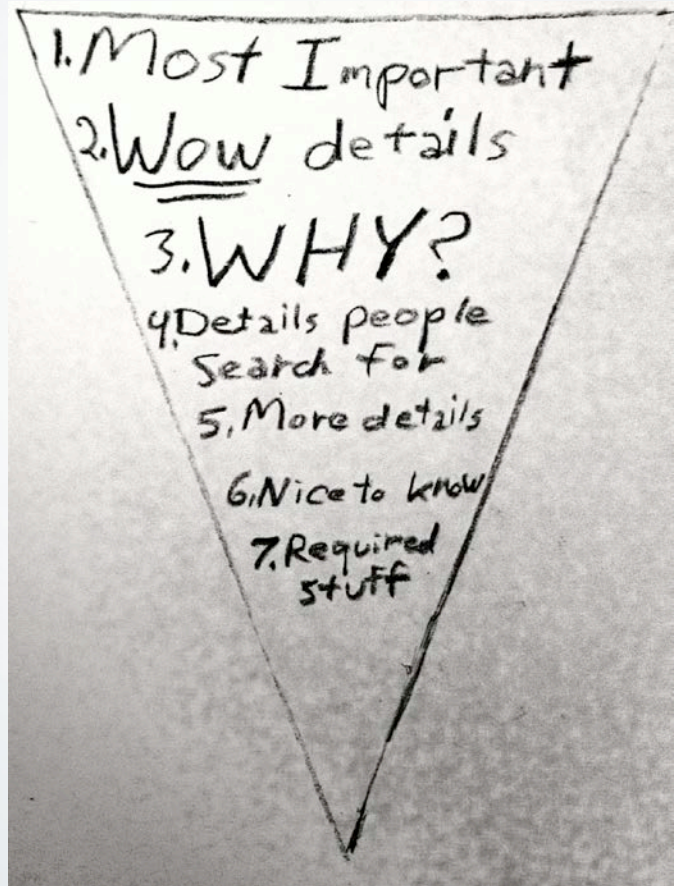 1. Most Important
2. Wow details
3. WHY?
4. Details people
Search for
5. More details
6. Nice to know
7. Required
stuff